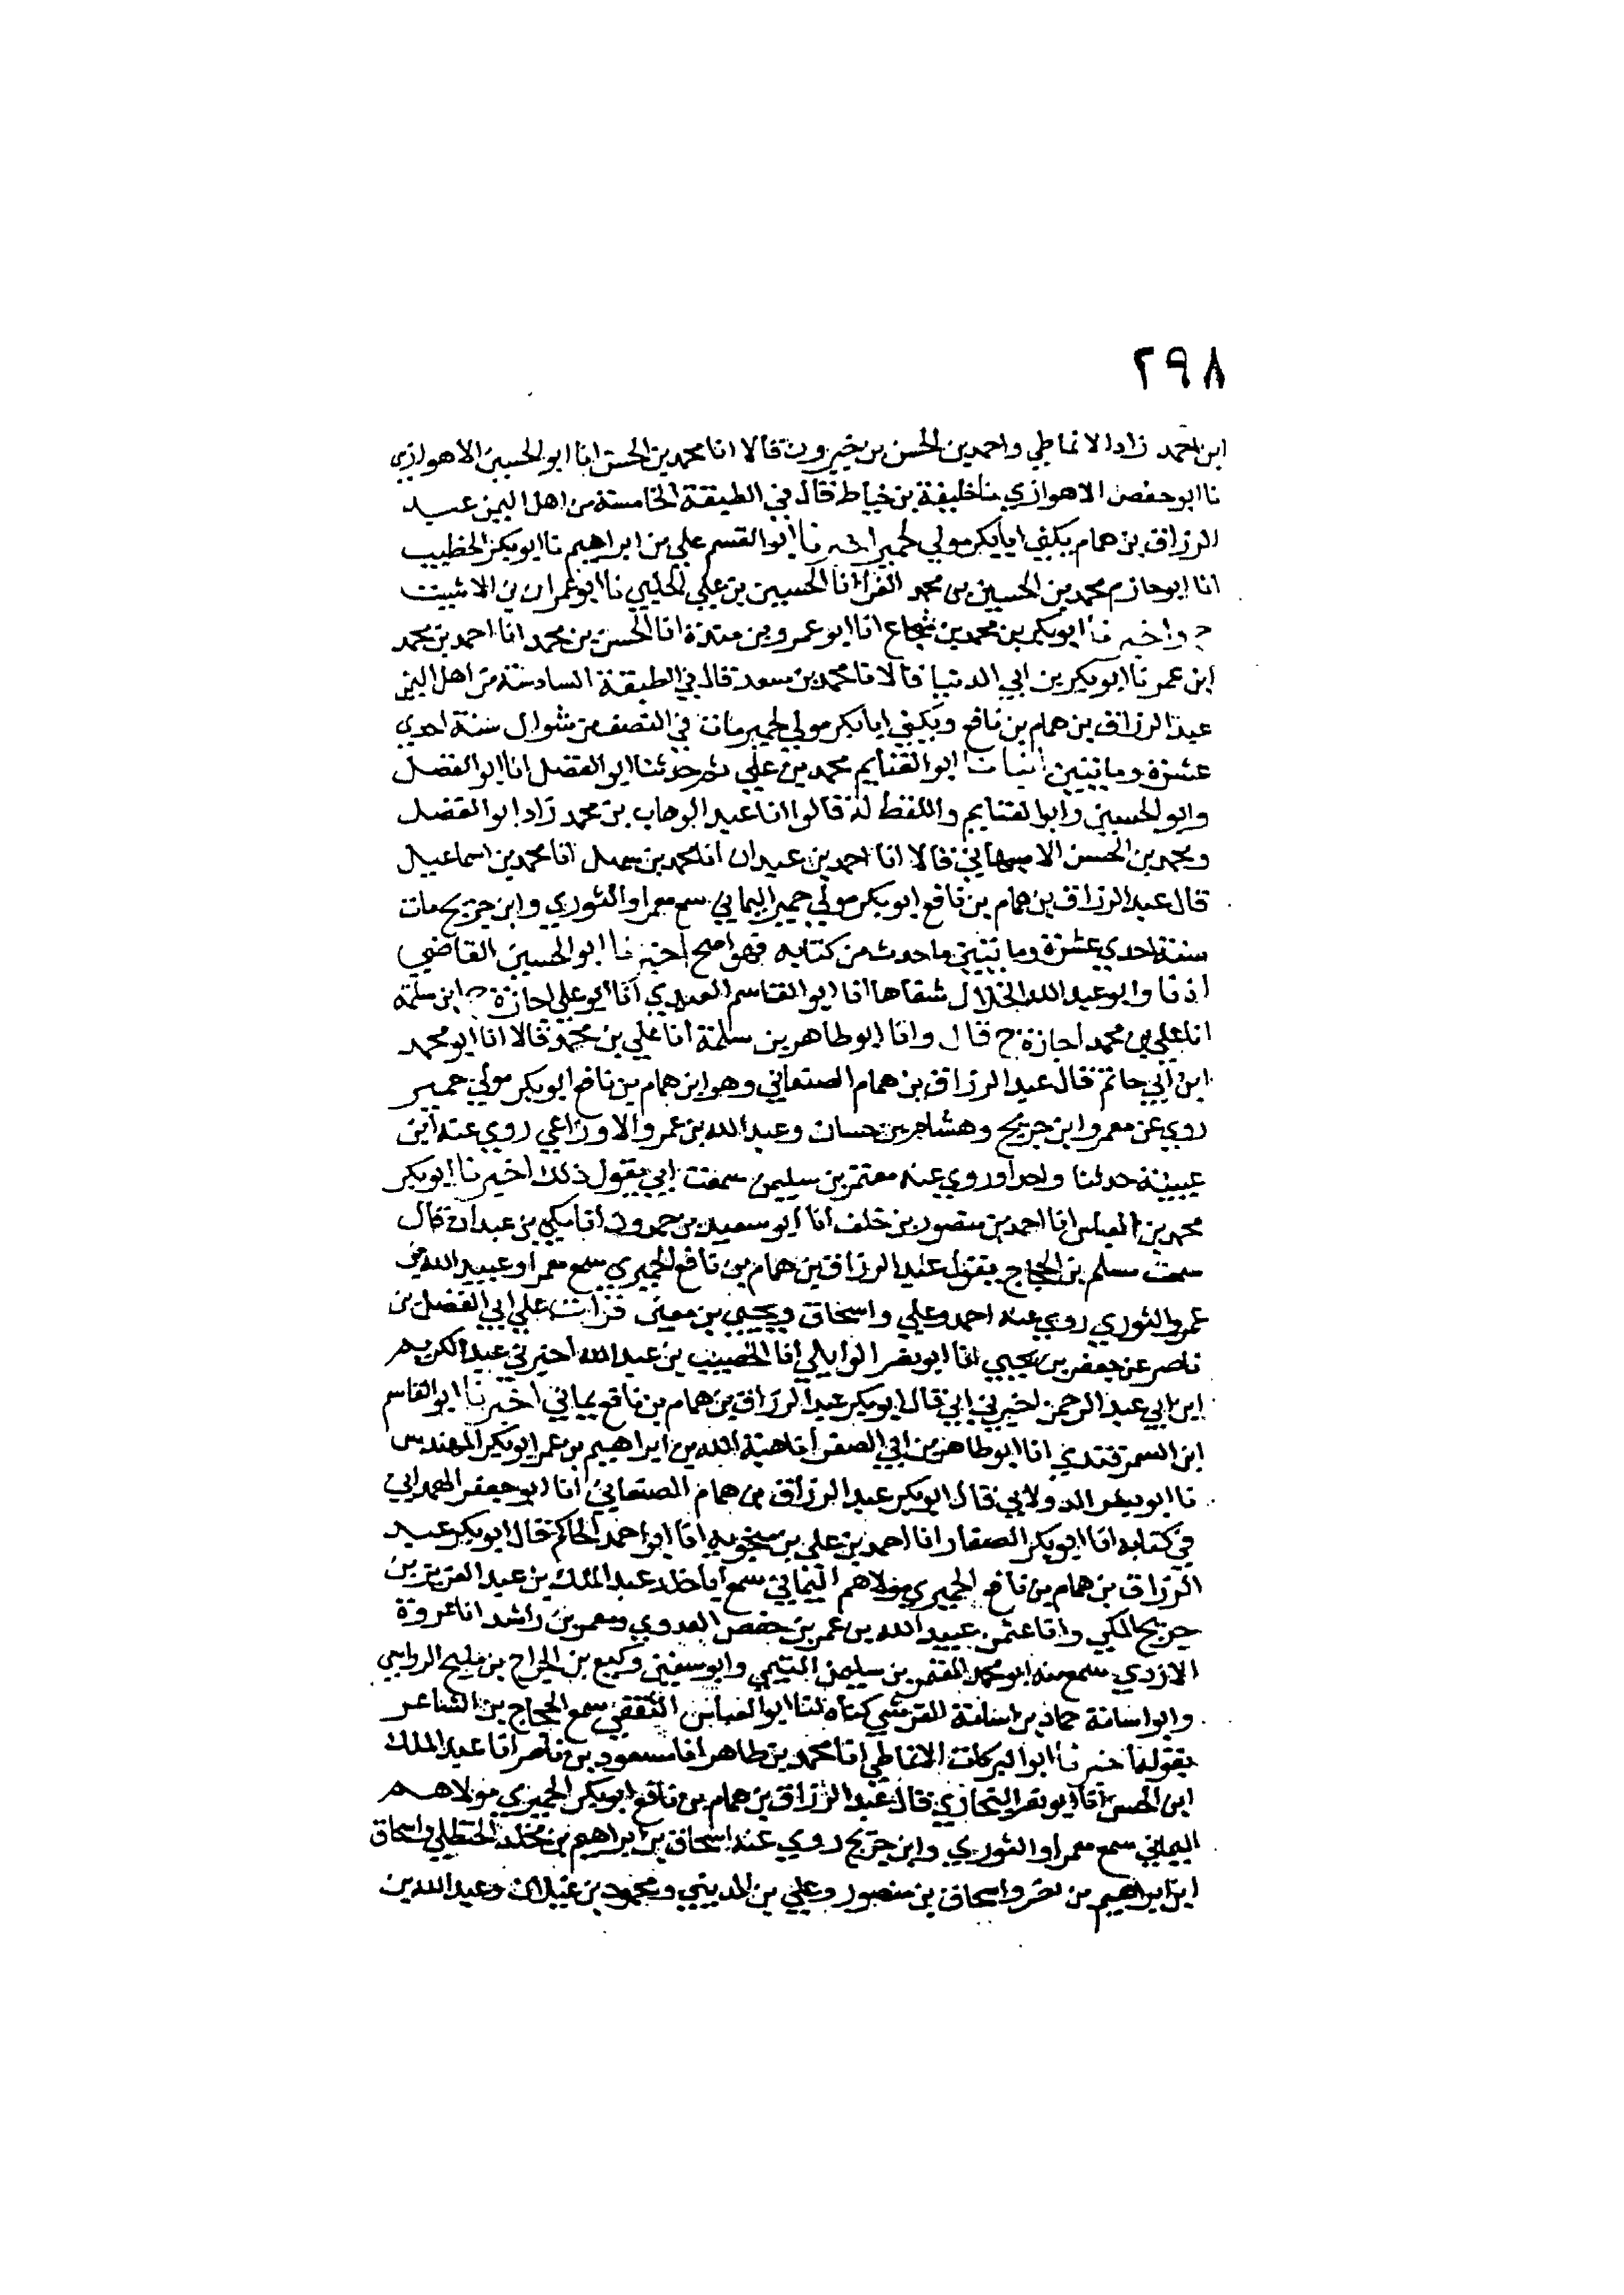 ٢٩٨
ابن احمد زاد الانماطي واحمد بن الحسن بن خيرون قالا انا محمد بن الحسن انا ابو الحسين الاهوازي
نا ابو حفص الاهوازي نا خليفة بن خياط قال في الطبقة الخامسة من اهل اليمن عبد
الرزاق بن همام يكنى ابا بكر مولي لحمير اخبرنا ابو القسم علي بن ابراهيم نا ابو بكر الخطيب
انا ابو حازم محمد بن الحسين بن محمد الفرا انا الحسين بن علي الحلبي نا ابو عمران بن الاشيب
ح واخبرنا ابو بكر بن محمد بن شجاع انا ابو عمرو بن مندة انا الحسن بن محمد انا احمد بن محمد
ابن عمر نا ابو بكر بن ابي الدنيا قالا نا محمد بن سعد قال في الطبقة السادسة من اهل اليمن
عبد الرزاق بن همام بن نافع ويكنى ابا بكر مولي لحمير مات في النصف من شوال سنة احدي
عشرة وماتيين انبانا ابو الغنايم محمد بن علي ثم حدثنا ابو الفضل انا ابو الفضل
وابو الحسين وابو الغنايم واللفظ له قالوا انا عبد الوهاب بن محمد زاد ابو الفضل
ومحمد بن الحسن الاصبهاني قالا انا احمد بن عبدان انا محمد بن سهل انا محمد بن اسماعيل
قال عبد الرزاق بن همام بن نافع ابو بكر مولي حمير اليماني سمع معمرا والثوري وابن جريج مات
سنة احدي عشرة وماتيين ما حدث من كتابه فهو اصح اخبرنا ابو الحسين القاضي
اذنا وابو عبد الله الخلال شفاها انا ابو القاسم العبدي انا ابو علي اجازة ح ابن سلمة
انا علي بن محمد اجازة ح قال وانا ابو طاهر بن سلمة انا علي بن محمد قالا انا ابو محمد
ابن ابي حاتم قال عبد الرزاق بن همام الصنعاني وهو ابن همام بن نافع ابو بكر مولي حمير
روي عن معمر وابن جريج وهشام بن حسان وعبد الله بن عمر والاوزاعي روي عنه ابن
عيينة حدثنا واحدا وروي عنه معتمر بن سليمن سمعت ابي يقول ذلك اخبرنا ابو بكر
محمد بن العباس انا احمد بن منصور بن خلف انا ابو سعيد بن حمدون انا مكي بن عبدان قال
سمعت مسلم بن الحجاج يقول عبد الرزاق بن همام بن نافع الحميري سمع معمرا وعبيد الله بن
عمر والثوري روي عنه احمد وعلي واسحاق ويحيي بن معين قرات علي ابي الفضل بن
ناصر عن جعفر بن يحيي انا ابو نصر الوايلي انا الخصيب بن عبد الله اخبرني عبد الكريم
ابن ابي عبد الرحمن اخبرني ابي قال ابو بكر عبد الرزاق بن همام بن نافع يماني اخبرنا ابو القاسم
ابن السمرقندي انا ابو طاهر بن ابي الصقر انا هبة الله بن ابراهيم بن عمر ابو بكر المهندس
نا ابو بشر الدولابي قال ابو بكر عبد الرزاق بن همام الصنعاني انا ابو جعفر الهمداني
في كتابه انا ابو بكر الصفار انا احمد بن علي بن منجويه انا ابو احمد الحاكم قال ابو بكر عبد
الرزاق بن همام بن نافع الحميري مولاهم اليماني سمع ابا خلد عبد الملك بن عبد العزيز بن
جريج المكي وانا عثمن عبيد الله بن عمر بن حفص العدوي ومعمر بن راشد انا عروة
الازدي سمع منه ابو محمد المعتمر بن سليمن التيمي وابو سفين وكيع بن الجراح بن مليح الرواسي
وابو اسامة حماد بن اسامة القرشي كناه لنا ابو العباس الثقفي سمع الحجاج بن الشاعر
يقوله اخبرنا ابو البركات الانماطي انا محمد بن طاهر انا مسعود بن ناصر انا عبد الملك
ابن الحسن انا ابو نصر البخاري قال عبد الرزاق بن همام بن نافع ابو بكر الحميري مولاهم
اليماني سمع معمرا والثوري وابن جريج روي عنه اسحاق بن ابراهيم بن مخلد الحنظلي واسحاق
ابن ابراهيم بن نصر واسحاق بن منصور وعلي بن المديني ومحمود بن غيلان وعبد الله بن